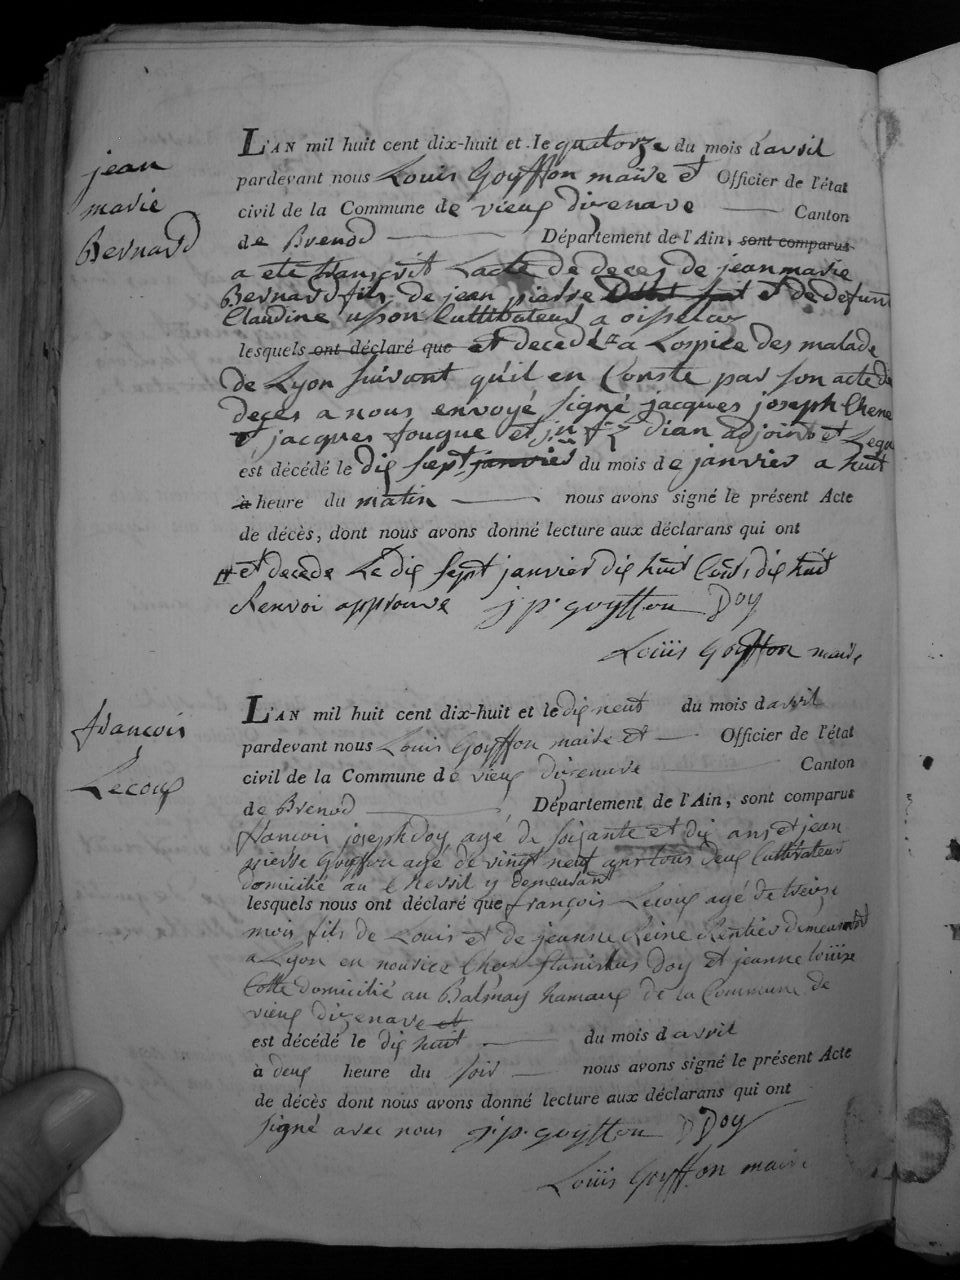 jean
marie
Bernard
L'AN mil huit cent dix-huit et le quatorze du mois d'avril
pardevant nous Louis Goyffon maire et Officier de l'état
civil de la Commune de vieux dizenave Canton
de Brenod Département de l'Ain, sont comparus
a eté transcrit Lacte de deces de jean marie
Bernard fils de jean pierre et de defunt
Claudine Cultivateur a
lesquels ont déclaré que et decedé a Lospice des malade
de Lyon suivant qu'il en Conste par son acte de
deces a nous envoyé signé jacques joseph Chene
et jacques fouque et dian adjoint et
est décédé le dix sept janvier du mois de janvier a huit
à heure du matin nous avons signé le présent Acte
de décès, dont nous avons donné lecture aux déclarans qui ont
et decede Le dix sept janvier dix huit Cent dix huit
Renvoi approuvé j p goyffon Doy
Louis Goyffon maire
françois
Lecoux
L'AN mil huit cent dix-huit et le dix neuf du mois d avril
pardevant nous Louis Goyffon maire et Officier de l'état
civil de la Commune de vieux dizenave Canton
de Brenod Département de l'Ain, sont comparus
francois joseph doy agé de soixante et dix ans et jean
pierre Goyffon agé de vingt neuf ans tous deux Cultivateur
domicilié au Chevril y demeurant
lesquels nous ont déclaré que françois Lecoux agé de treize
mois fils de Louis et de jeanne Reine Rentier demeurant
a Lyon en nourice Chez stanislas Doy et jeanne louise
Cotte domicilié au Balmay hamaux de la Commune de
vieux dizenave et
est décédé le dix huit du mois d avril
à deux heure du soir nous avons signé le présent Acte
de décès dont nous avons donné lecture aux déclarans qui ont
signé avec nous j. p. goyffon Doy
Louis Goyffon maire